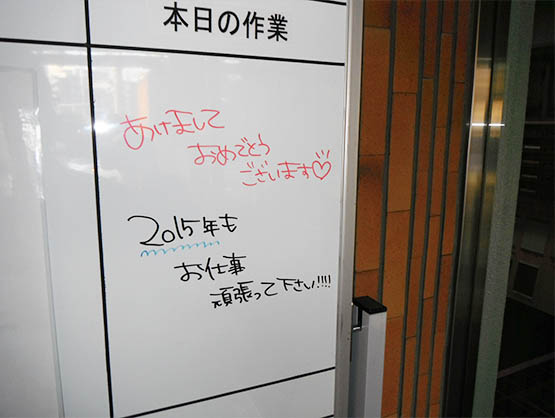 本日の作業
あけまして
おめでとう
ございます♡
2015年も
お仕事
頑張って下さい!!!!